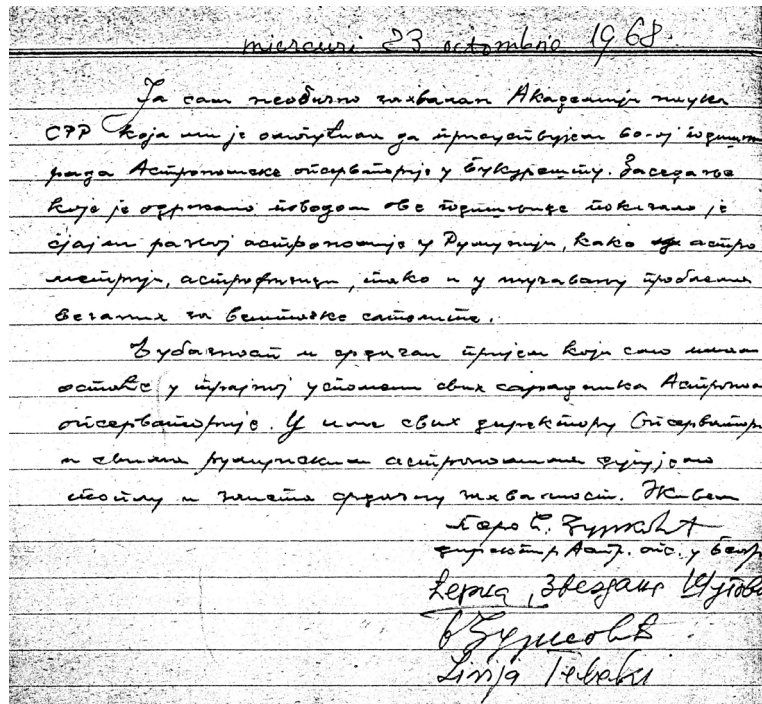 miercuri 23 octombrie 1968.
Ја сам необично захвалан Академији наука
СРР која ми је омогућила да присуствујем 60-ој годишњ
рада Астрономске опсерваторије у Букурешту. Заседање
које је одржано поводом ове годишњице показало је
сјајни развој астрономије у Румунији, како у астро
метрији, астрофизици, тако и у изучавању проблема
везаних за вештачке сателите.
Љубазност и срдачан пријем који смо имали
остаће у трајној успомени свих сарадника Астроном
опсерваторије. У име свих директору Опсерватор
и свима румунским астрономима дугујемо
топлу и заиста срдачну захвалност. Живели
Перо Ђ. Ђурковић
директор Астр. опс. у Беогр
Звездана